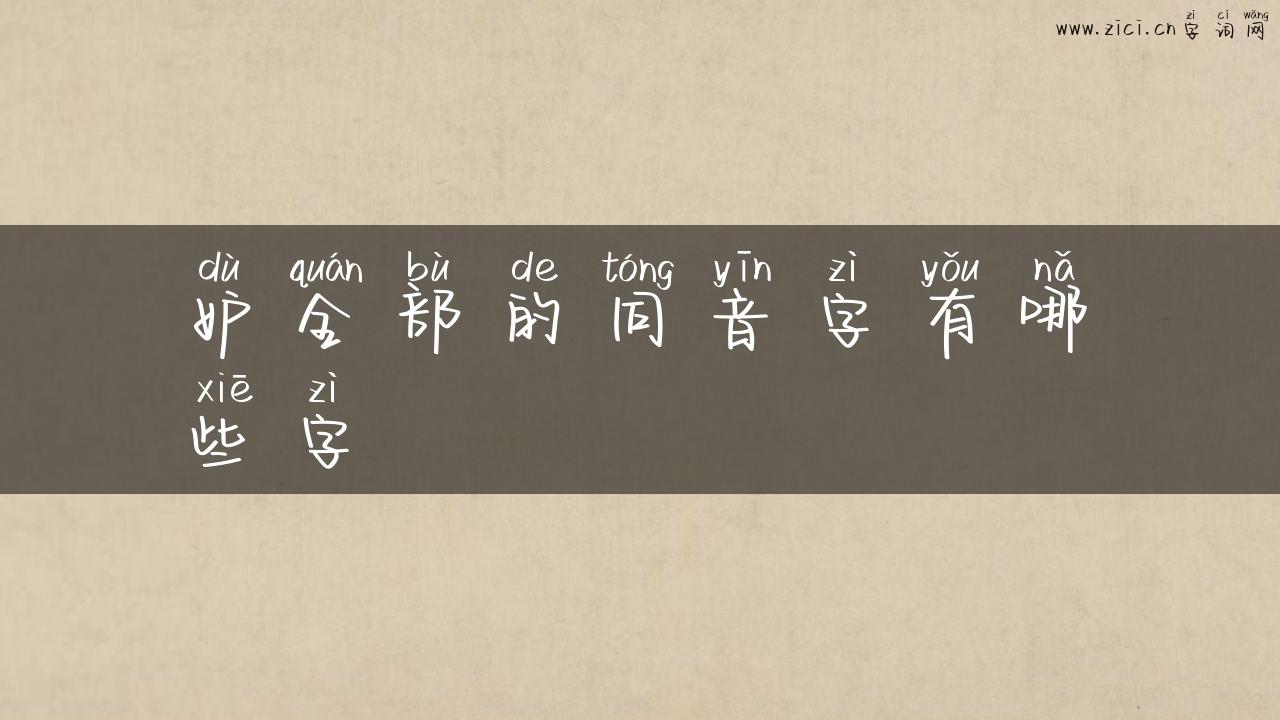 zì cí wǎng
www.zici.cn字词网
dù quán bù de tóng yīn zì yǒu nǎ
妒全部的同音字有哪
xiē zì
些字